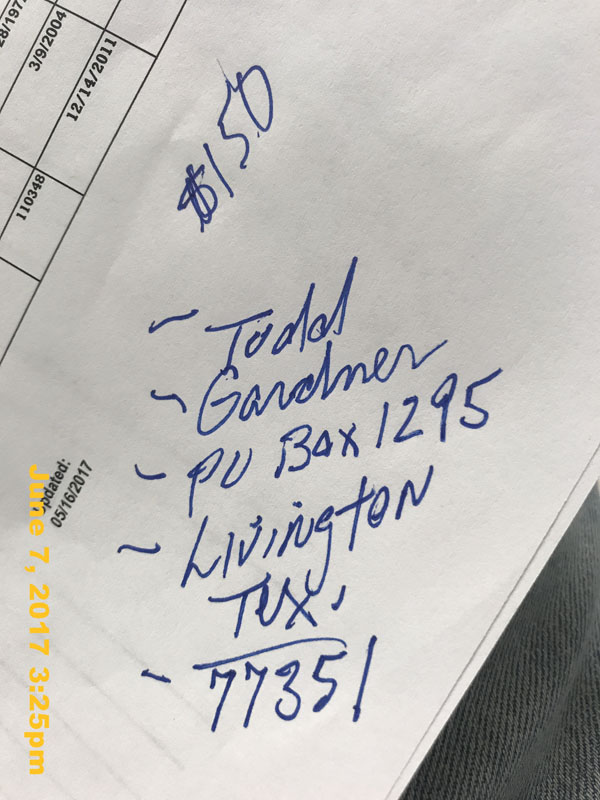 28/197
3/9/2004
12/14/2011
110348
$150
Todd
Gardner
PO Box 1295
Livington
Tex.
77351
pdated:
05/16/2017
June 7, 2017 3:25pm